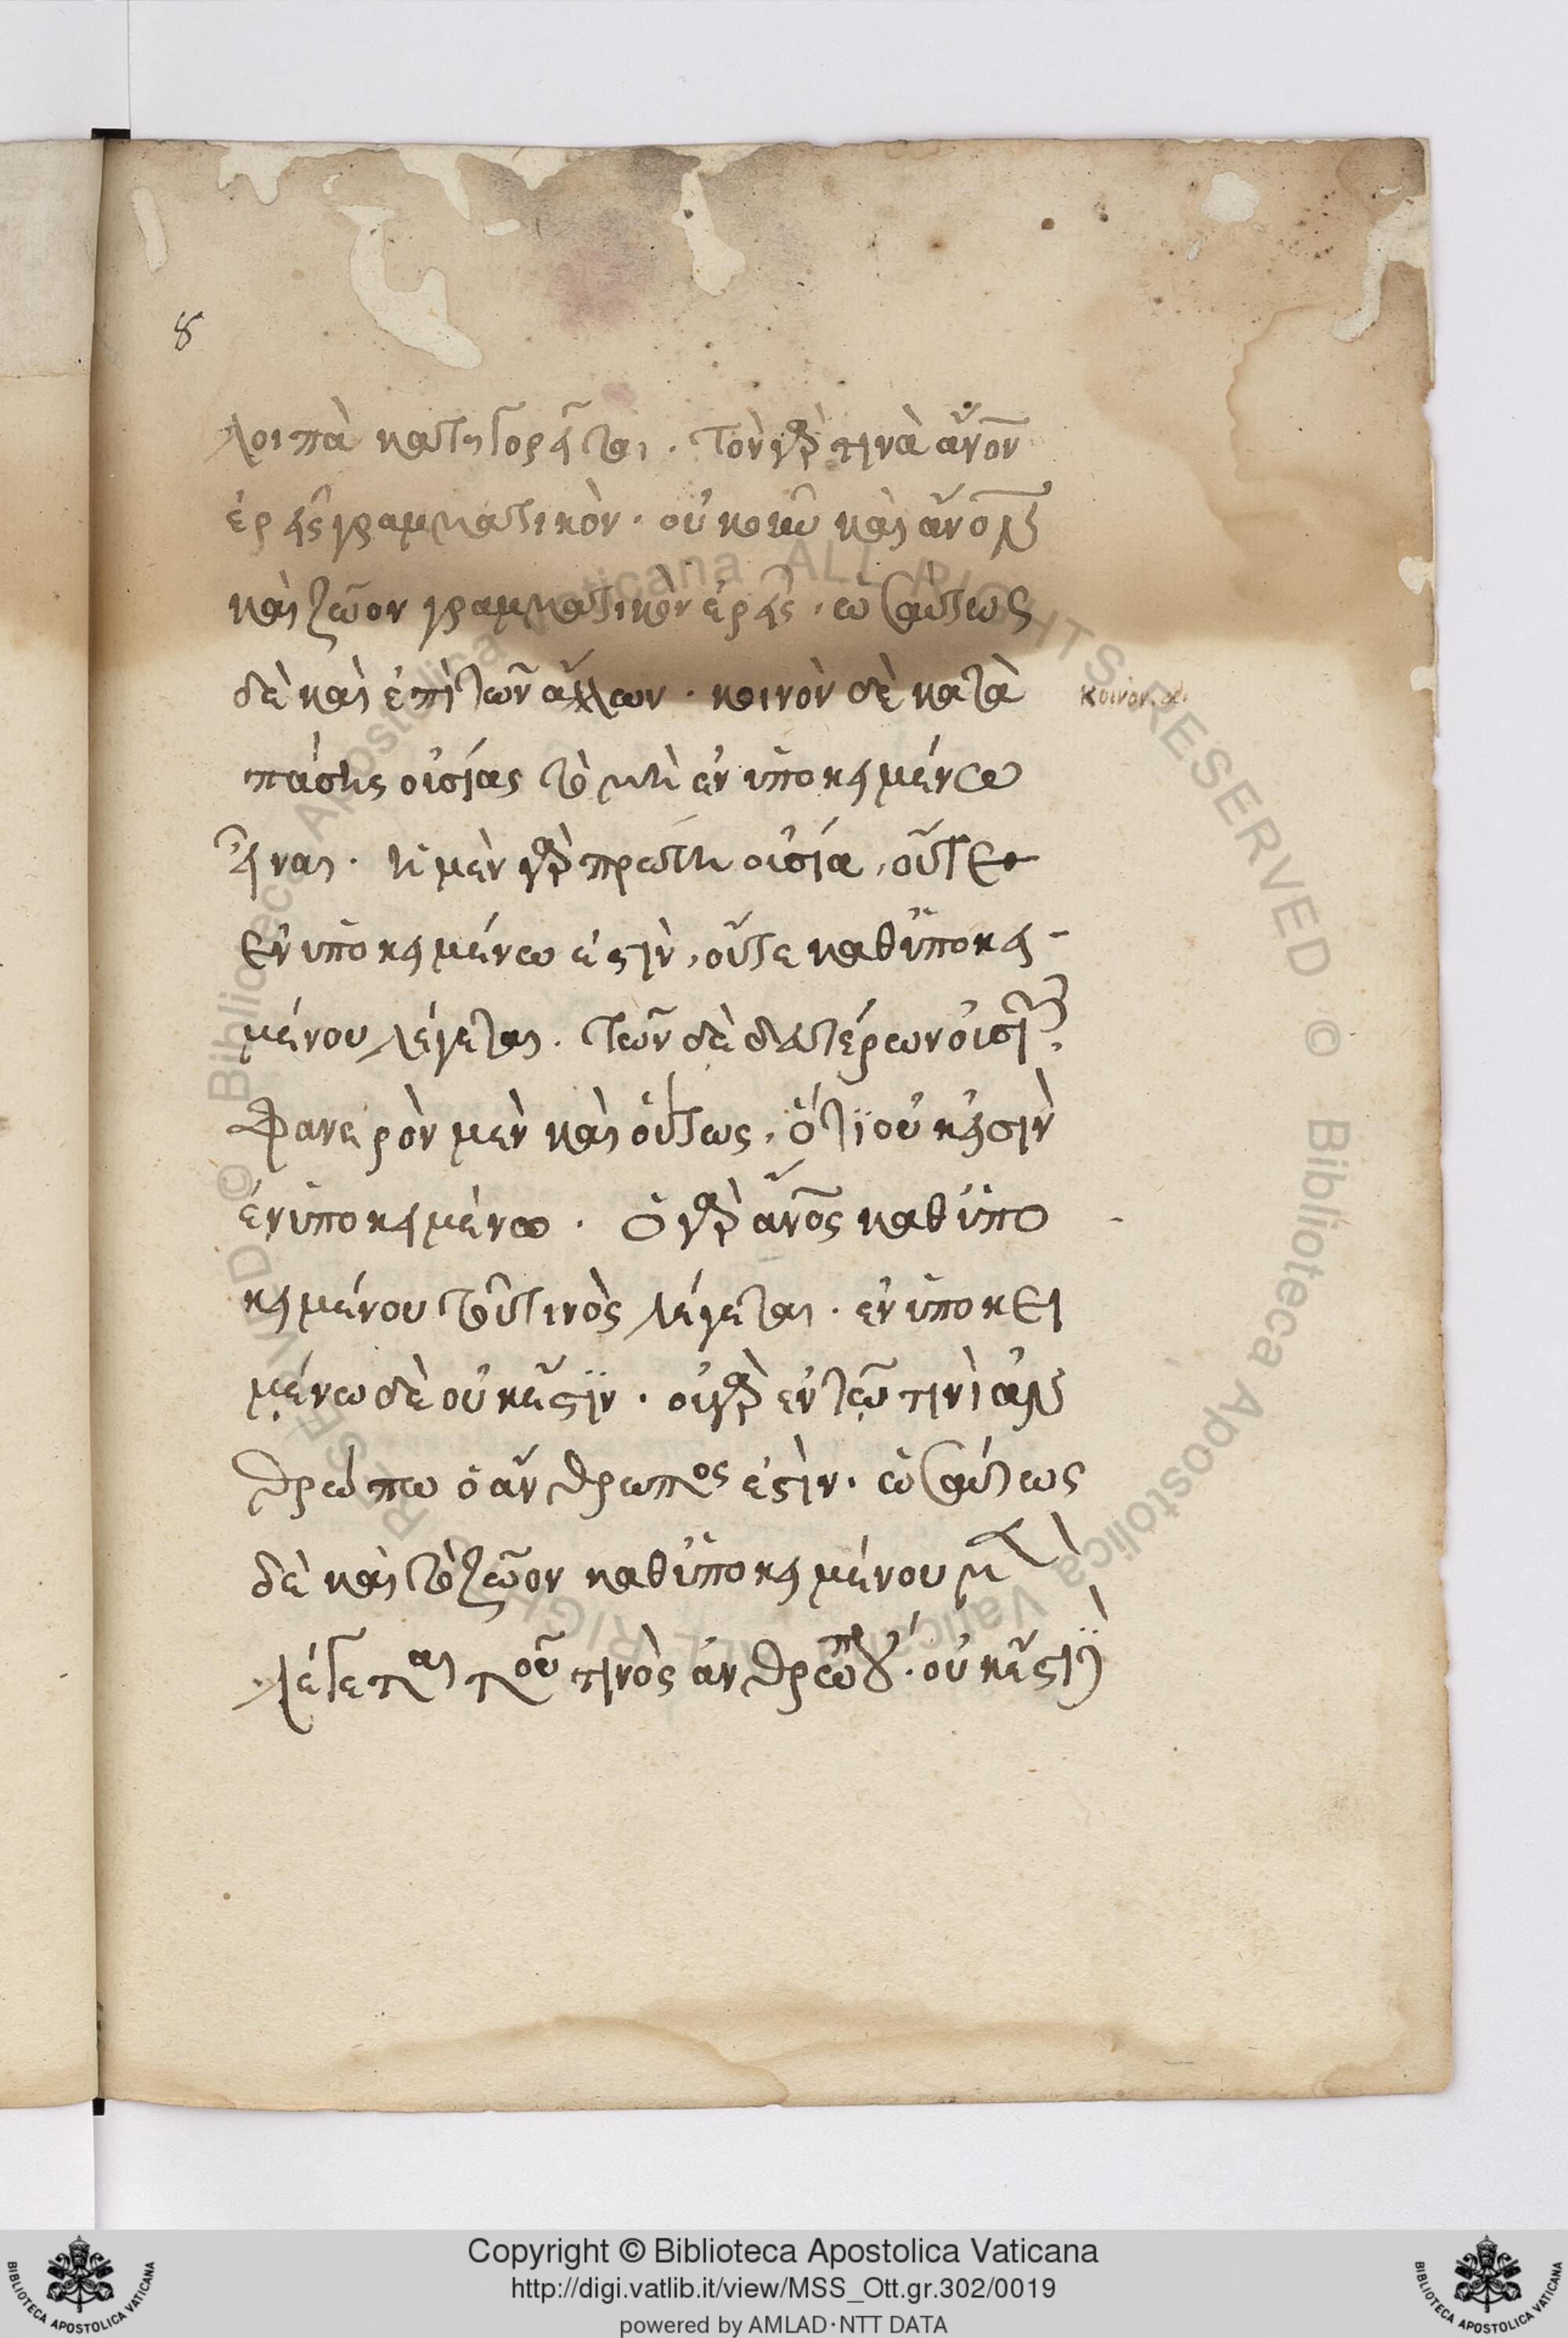 8
λοιπὰ κατηγορεῖται · τὸν γὰρ τινὰ ἄνον
ἐρεῖς γραμματικὸν · οὐκοῦν καὶ ἄνον
καὶ ζῶον γραμματικὸν ἐρεῖς · ὡσαύτως
δὲ καὶ ἐπὶ τῶν ἄλλων · κοινὸν δὲ κατὰ
κοινὸν δὲ
πάσης οὐσίας τὸ μὴ ἐν ὑποκειμένω
εἶναι · ἡ μὲν γὰρ πρώτη οὐσία, οὔτε
ἐν ὑποκειμένω ἐστὶν, οὔτε καθ ὑποκει-
μένου λέγεται · τῶν δὲ δευτέρων οὐσιῶν,
φανερὸν μὲν καὶ οὕτως, ὅτι οὐκ εἰσὶν
ἐν ὑποκειμένω · ὁ γὰρ ἄνος καθ ὑπο
κειμένου τοῦ τινὸς λέγεται · ἐν ὑποκει
μένω δὲ οὐκ ἔστϊν · οὐ γὰρ ἐν τῶ τινὶ ἀν
θρώπω ὁ ἄνθρωπος ἐστὶν · ὡσαύτως
δὲ καὶ τὸ ζῶον καθ ὑποκειμένου μὲν
λέγεται τοῦ τινὸς ἀνθρώπου · οὐκ ἔστϊ
Copyright © Biblioteca Apostolica Vaticana
http://digi.vatlib.it/view/MSS_Ott.gr.302/0019
powered by AMLAD·NTT DATA
BIBLIOTECA APOSTOLICA VATICANA
BIBLIOTECA APOSTOLICA VATICANA
© Biblioteca Apostolica Vaticana ALL RIGHTS RESERVED © Biblioteca Apostolica Vaticana ALL RIGHTS RESERVED